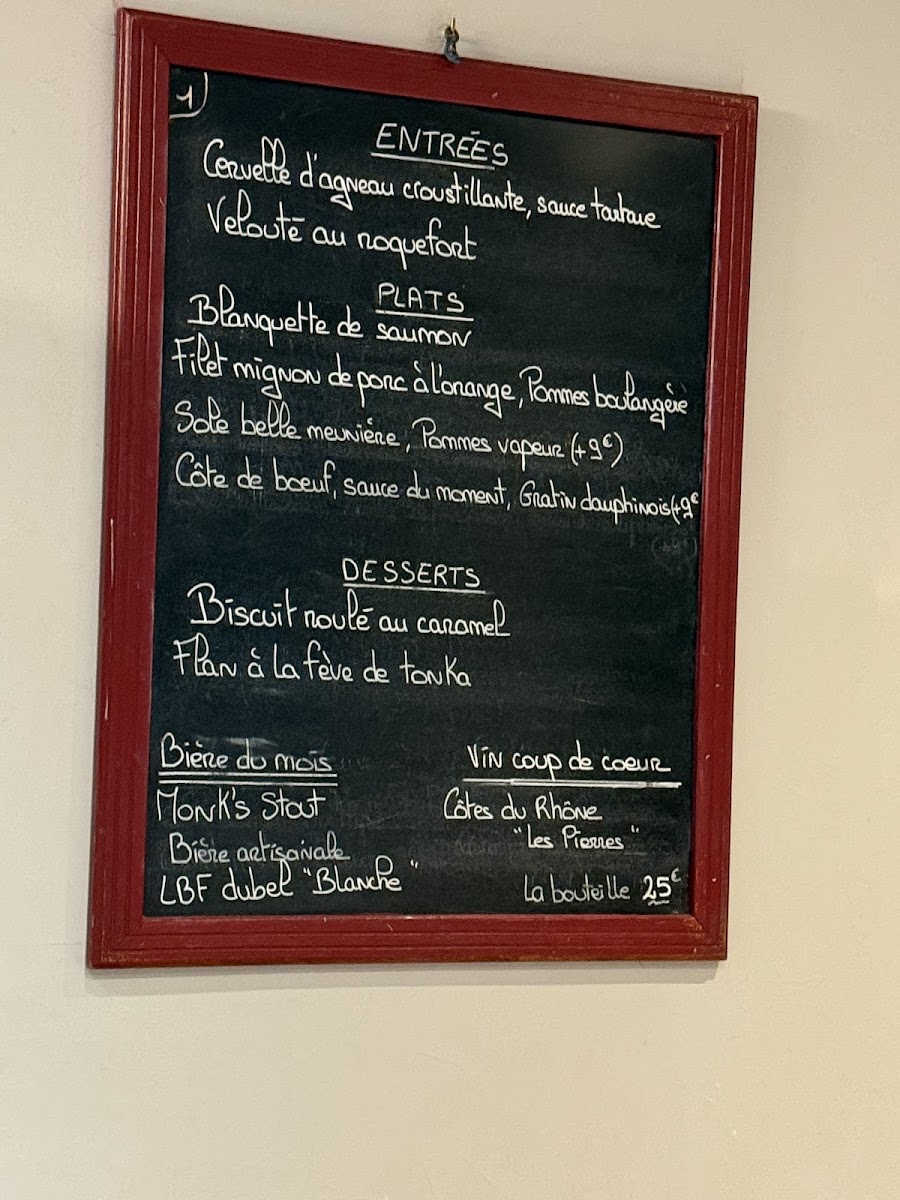 1
ENTRÉES
Cervelle d'agneau croustillante, sauce tartare
Velouté au roquefort
PLATS
Blanquette de saumon
Filet mignon de porc à l'orange, Pommes boulangère
Sole belle meunière, Pommes vapeur (+9€)
Côte de boeuf, sauce du moment, Gratin dauphinois (+9€
DESSERTS
Biscuit roulé au caramel
Flan à la fève de tonka
Bière du mois
Monk's Stout
Bière artisanale
LBF dubel "Blanche"
Vin coup de coeur
Côtes du Rhône
"Les Pierres"
La bouteille 25€